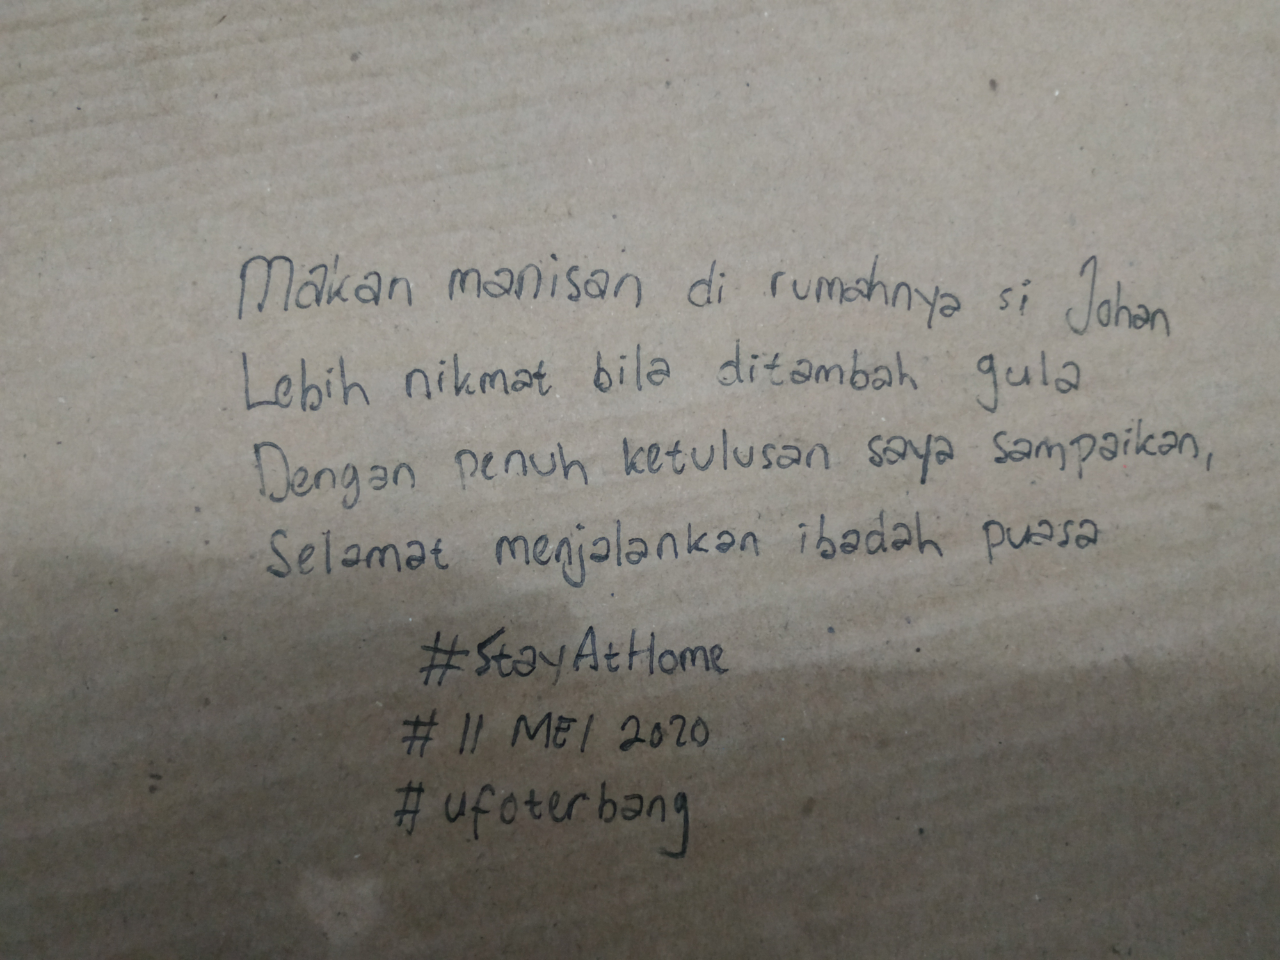 Makan manisan di rumahnya si Johan
Lebih nikmat bila ditambah gula
Dengan penuh ketulusan saya sampaikan,
Selamat menjalankan ibadah puasa
#StayAtHome
# 11 MEI 2020
# ufoterbang